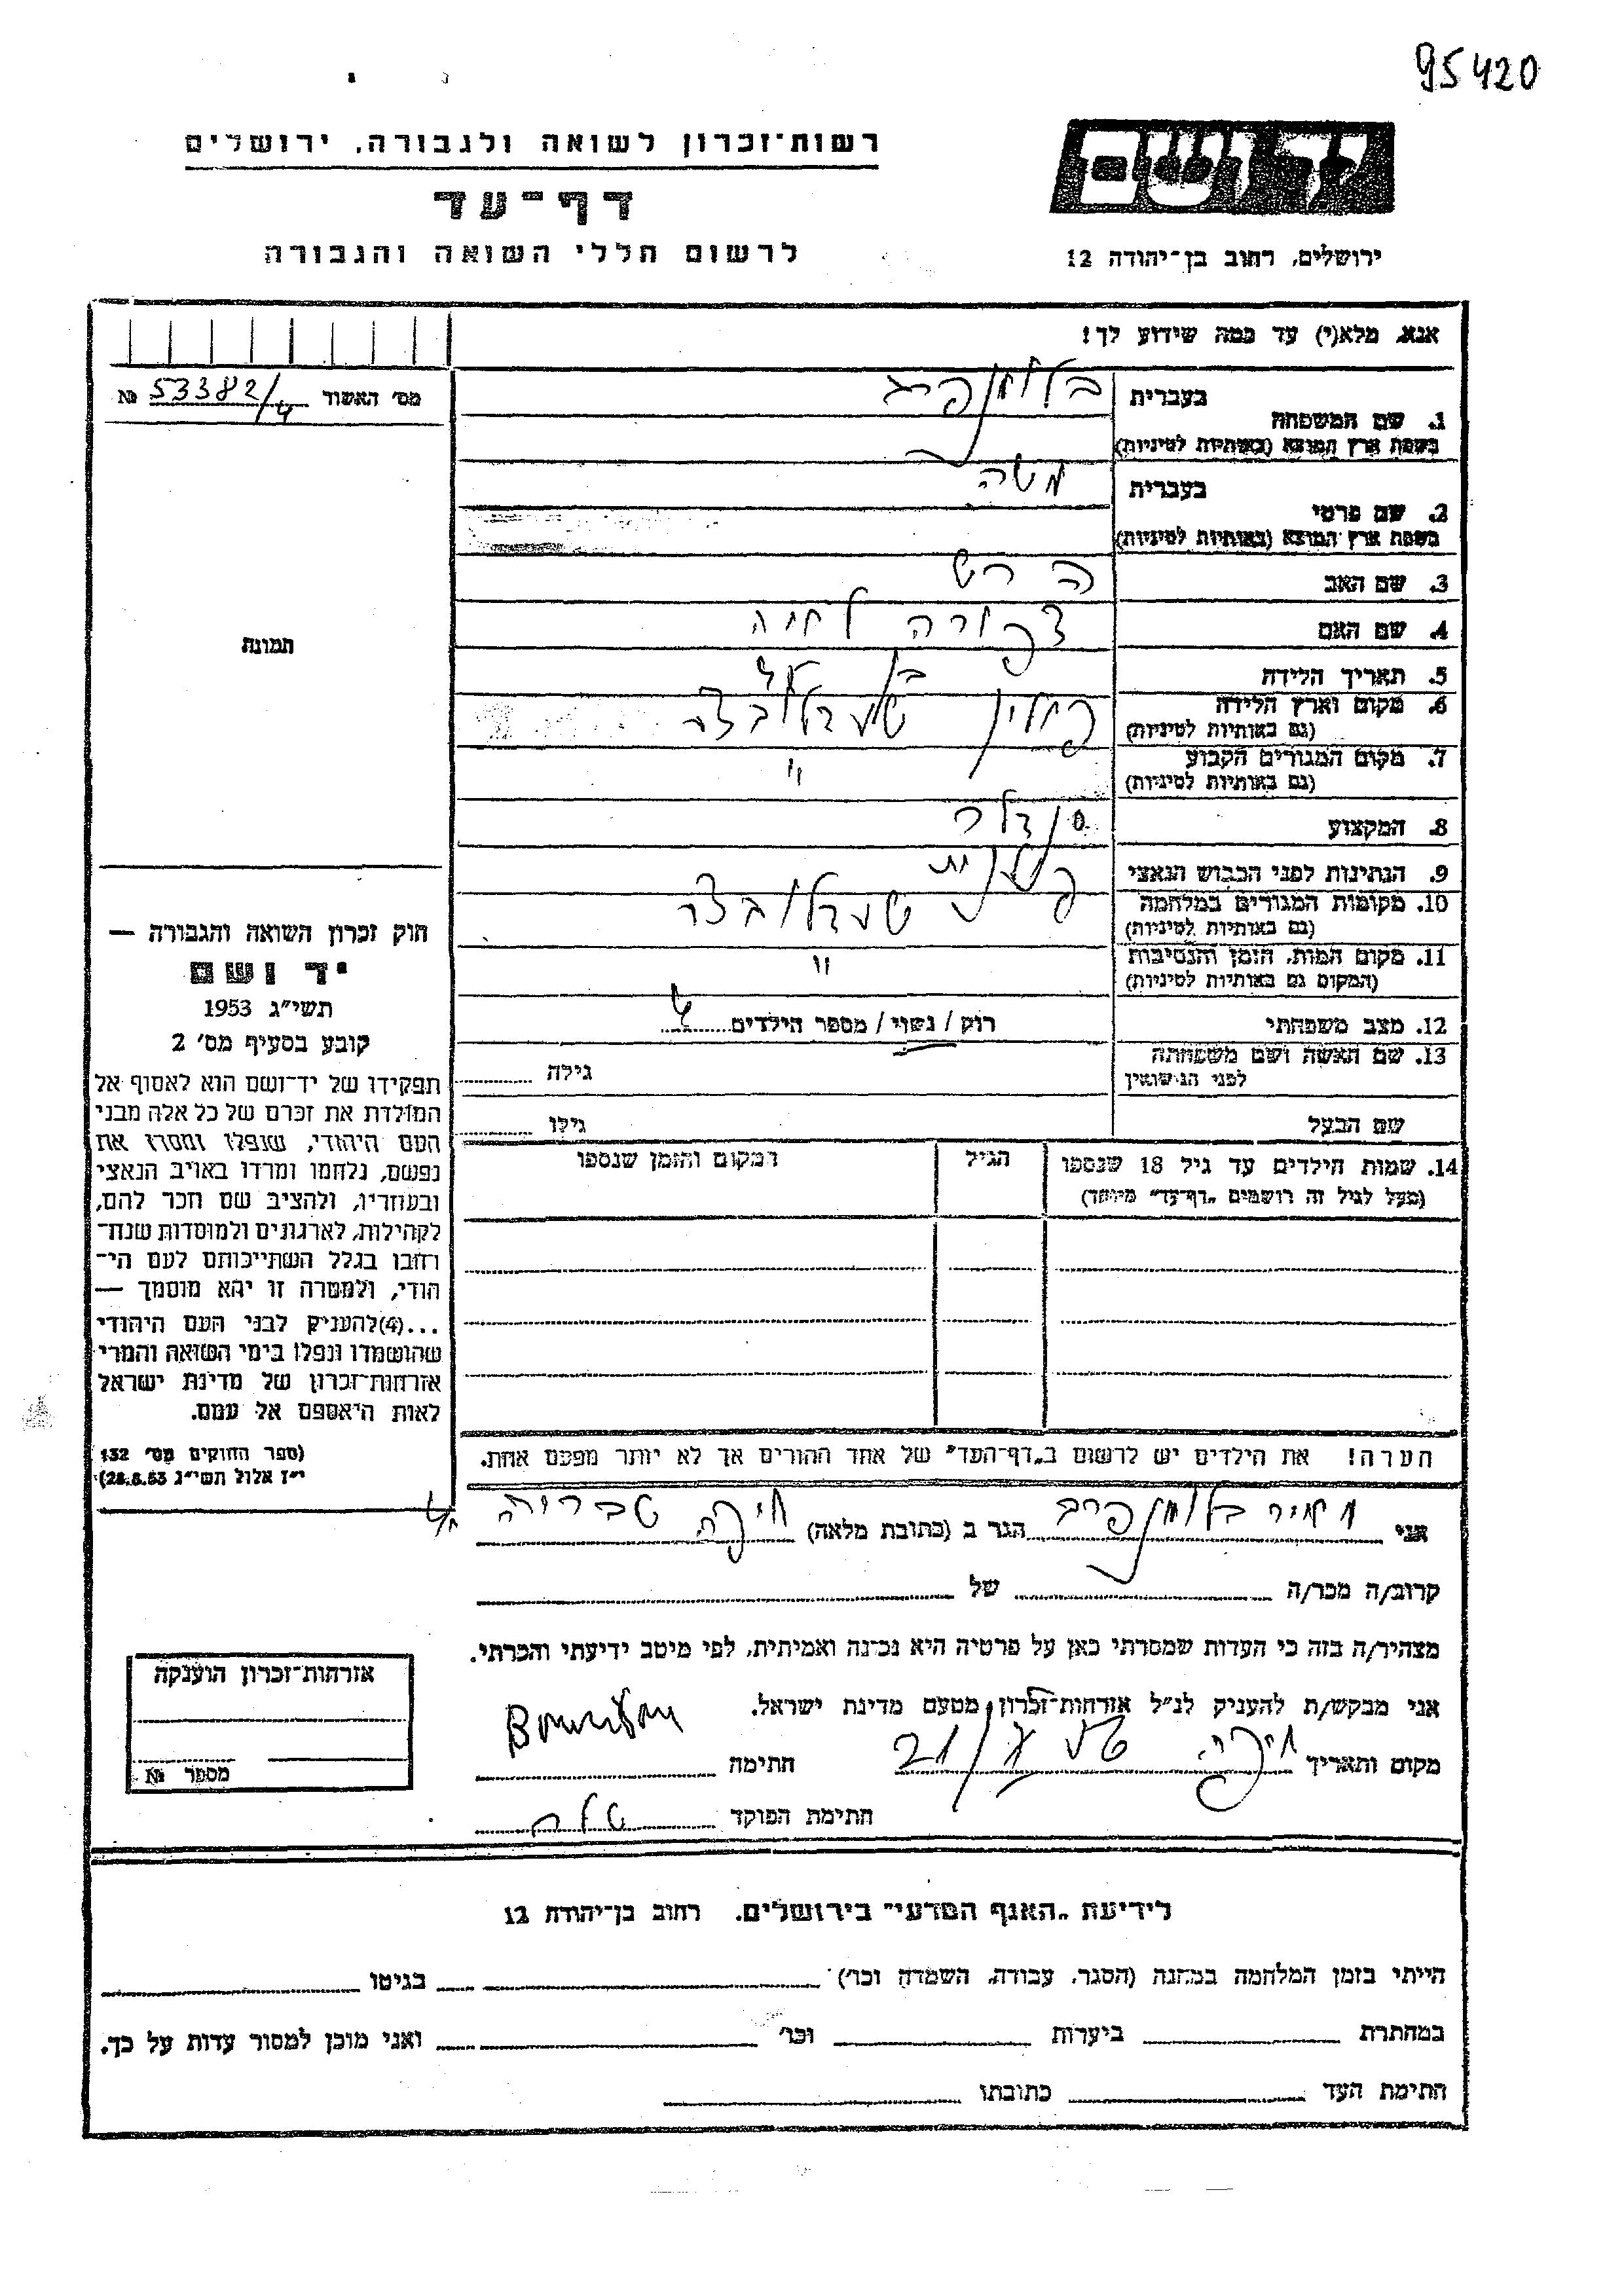 95420
רשות־זכרון לשואה ולגבורה, ירושלים
דף־עד
לרשום חללי השואה והגבורה
יד ושם
ירושלים, רחוב בן־יהודה 12
אנא, מלא(י) עד כמה שידוע לך!
מס' האשור 53382/4 №
1. שם המשפחה
בעברית בלומנפרב
בשפת ארץ המוצא (באותיות לטיניות)
2. שם פרטי
בעברית משה
בשפת ארץ המוצא (באותיות לטיניות)
3. שם האב הרש
4. שם האם צפורה חיה
5. תאריך הלידה בן
6. מקום וארץ הלידה פולין
(גם באותיות לטיניות)
7. מקום המגורים הקבוע "
(גם באותיות לטיניות)
8. המקצוע סנדלר
9. הנתינות לפני הכבוש הנאצי פולנית
10. מקומות המגורים במלחמה
(גם באותיות לטיניות)
11. מקום המות, הזמן והנסיבות "
(המקום גם באותיות לטיניות)
12. מצב משפחתי רוק / נשוי / מספר הילדים 4
13. שם האשה ושם משפחתה
לפני הנישואין
גילה
שם הבעל גילו
14. שמות הילדים עד גיל 18 שנספו
(מעל לגיל זה רושמים "דף־עד" מיוחד)
הגיל
המקום והזמן שנספו
תמונה
חוק זכרון השואה והגבורה —
יד ושם
תשי"ג 1953
קובע בסעיף מס' 2
תפקידו של יד־ושם הוא לאסוף אל
המולדת את זכרם של כל אלה מבני
העם היהודי, שנפלו ומסרו את
נפשם, נלחמו ומרדו באויב הנאצי
ובעוזריו, ולהציב שם וזכר להם,
לקהילות, לארגונים ולמוסדות שנח־
רבו בגלל השתייכותם לעם הי־
הודי, ולמטרה זו יהא מוסמך —
...(4)להעניק לבני העם היהודי
שהושמדו ונפלו בימי השואה והמרי
אזרחות־זכרון של מדינת ישראל
לאות היאספם אל עמם.
(ספר החוקים מס' 132
י"ז אלול תשי"ג 28.8.53)
הערה! את הילדים יש לרשום ב"דף־העד" של אחד ההורים אך לא יותר מפעם אחת.
אני מאיר בלומנפרב הגר ב (כתובת מלאה) חיפה טבריה
קרוב/ה מכר/ה של
מצהיר/ה בזה כי העדות שמסרתי כאן על פרטיה היא נכונה ואמיתית, לפי מיטב ידיעתי והכרתי.
אני מבקש/ת להעניק לנ"ל אזרחות־זכרון מטעם מדינת ישראל.
מקום ותאריך חיפה חתימה
חתימת הפוקד
אזרחות־זכרון הוענקה
מספר №
לידיעת "האגף המדעי" בירושלים, רחוב בן־יהודה 12
הייתי בזמן המלחמה במחנה (הסגר, עבודה, השמדה וכו') בגיטו
במחתרת ביערות וכו' ואני מוכן למסור עדות על כך.
חתימת העד כתובתו